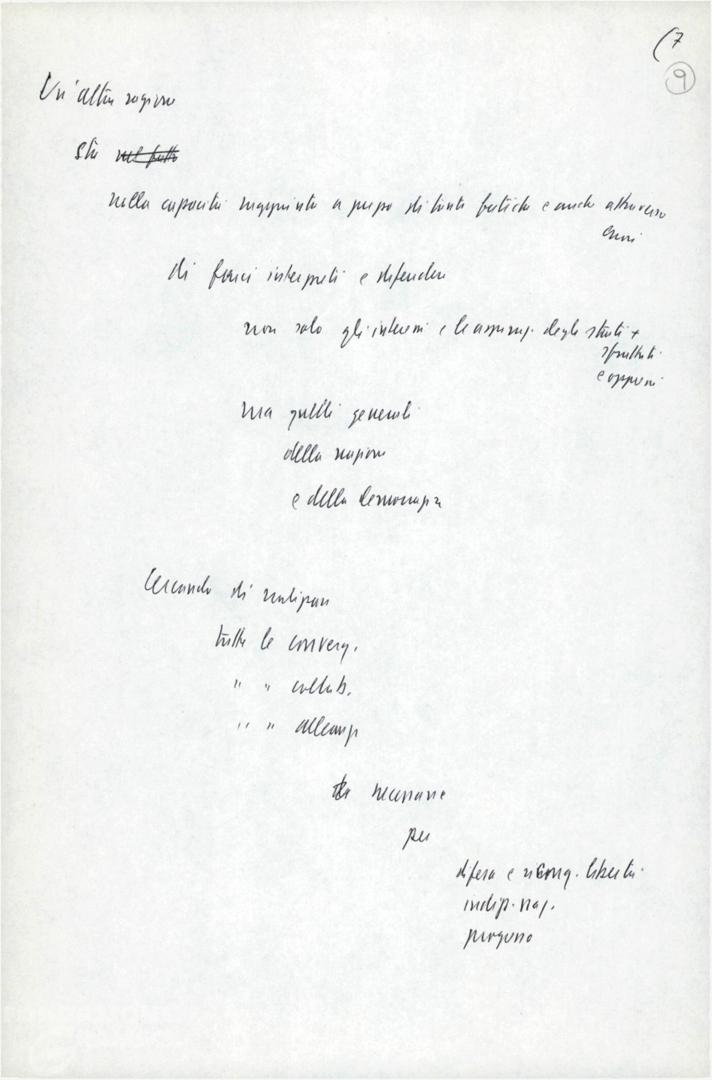 (7
9
Un'altra ragione
sta nel fatto
nella capacità raggiunta a prezzo di tante fatiche e anche attraverso
errori
di farci interpreti e difendere
non solo gli interessi e le aspiraz. degli strati +
sfruttati
e oppressi
ma quelli generali
della nazione
e della democrazia
Cercando di realizzare
tutte le converg.
" " collab.
" " alleanze
necessarie
per
difesa e riconq. libertà
indip. naz.
progresso